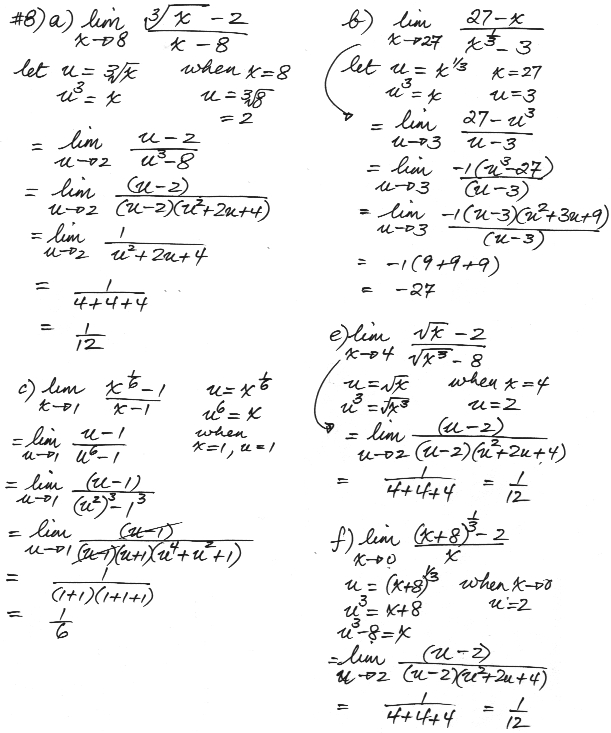 #8) a) lim x→8 (∛x - 2)/(x - 8)
let u = ∛x when x = 8
u³ = x u = ∛8
= 2
= lim u→2 (u - 2)/(u³ - 8)
= lim u→2 (u-2)/((u-2)(u²+2u+4))
= lim u→2 1/(u²+2u+4)
= 1/(4+4+4)
= 1/12
c) lim x→1 (x^(1/6) - 1)/(x - 1) u = x^(1/6)
u⁶ = x
= lim u→1 (u-1)/(u⁶-1) when x=1, u=1
= lim u→1 (u-1)/((u²)³ - 1³)
= lim u→1 (u-1)/((u-1)(u+1)(u⁴+u²+1))
= 1/((1+1)(1+1+1))
= 1/6
b) lim x→27 (27-x)/(x^(1/3) - 3)
let u = x^(1/3) x = 27
u³ = x u = 3
= lim u→3 (27-u³)/(u-3)
= lim u→3 -1(u³-27)/(u-3)
= lim u→3 -1(u-3)(u²+3u+9)/(u-3)
= -1(9+9+9)
= -27
e) lim x→4 (√x - 2)/(√x³ - 8)
u = √x when x = 4
u³ = √x³ u = 2
= lim u→2 (u-2)/((u-2)(u²+2u+4))
= 1/(4+4+4) = 1/12
f) lim x→0 ((x+8)^(1/3) - 2)/x
u = (x+8)^(1/3) when x→0
u³ = x+8 u=2
u³-8 = x
= lim u→2 (u-2)/((u-2)(u²+2u+4))
= 1/(4+4+4) = 1/12